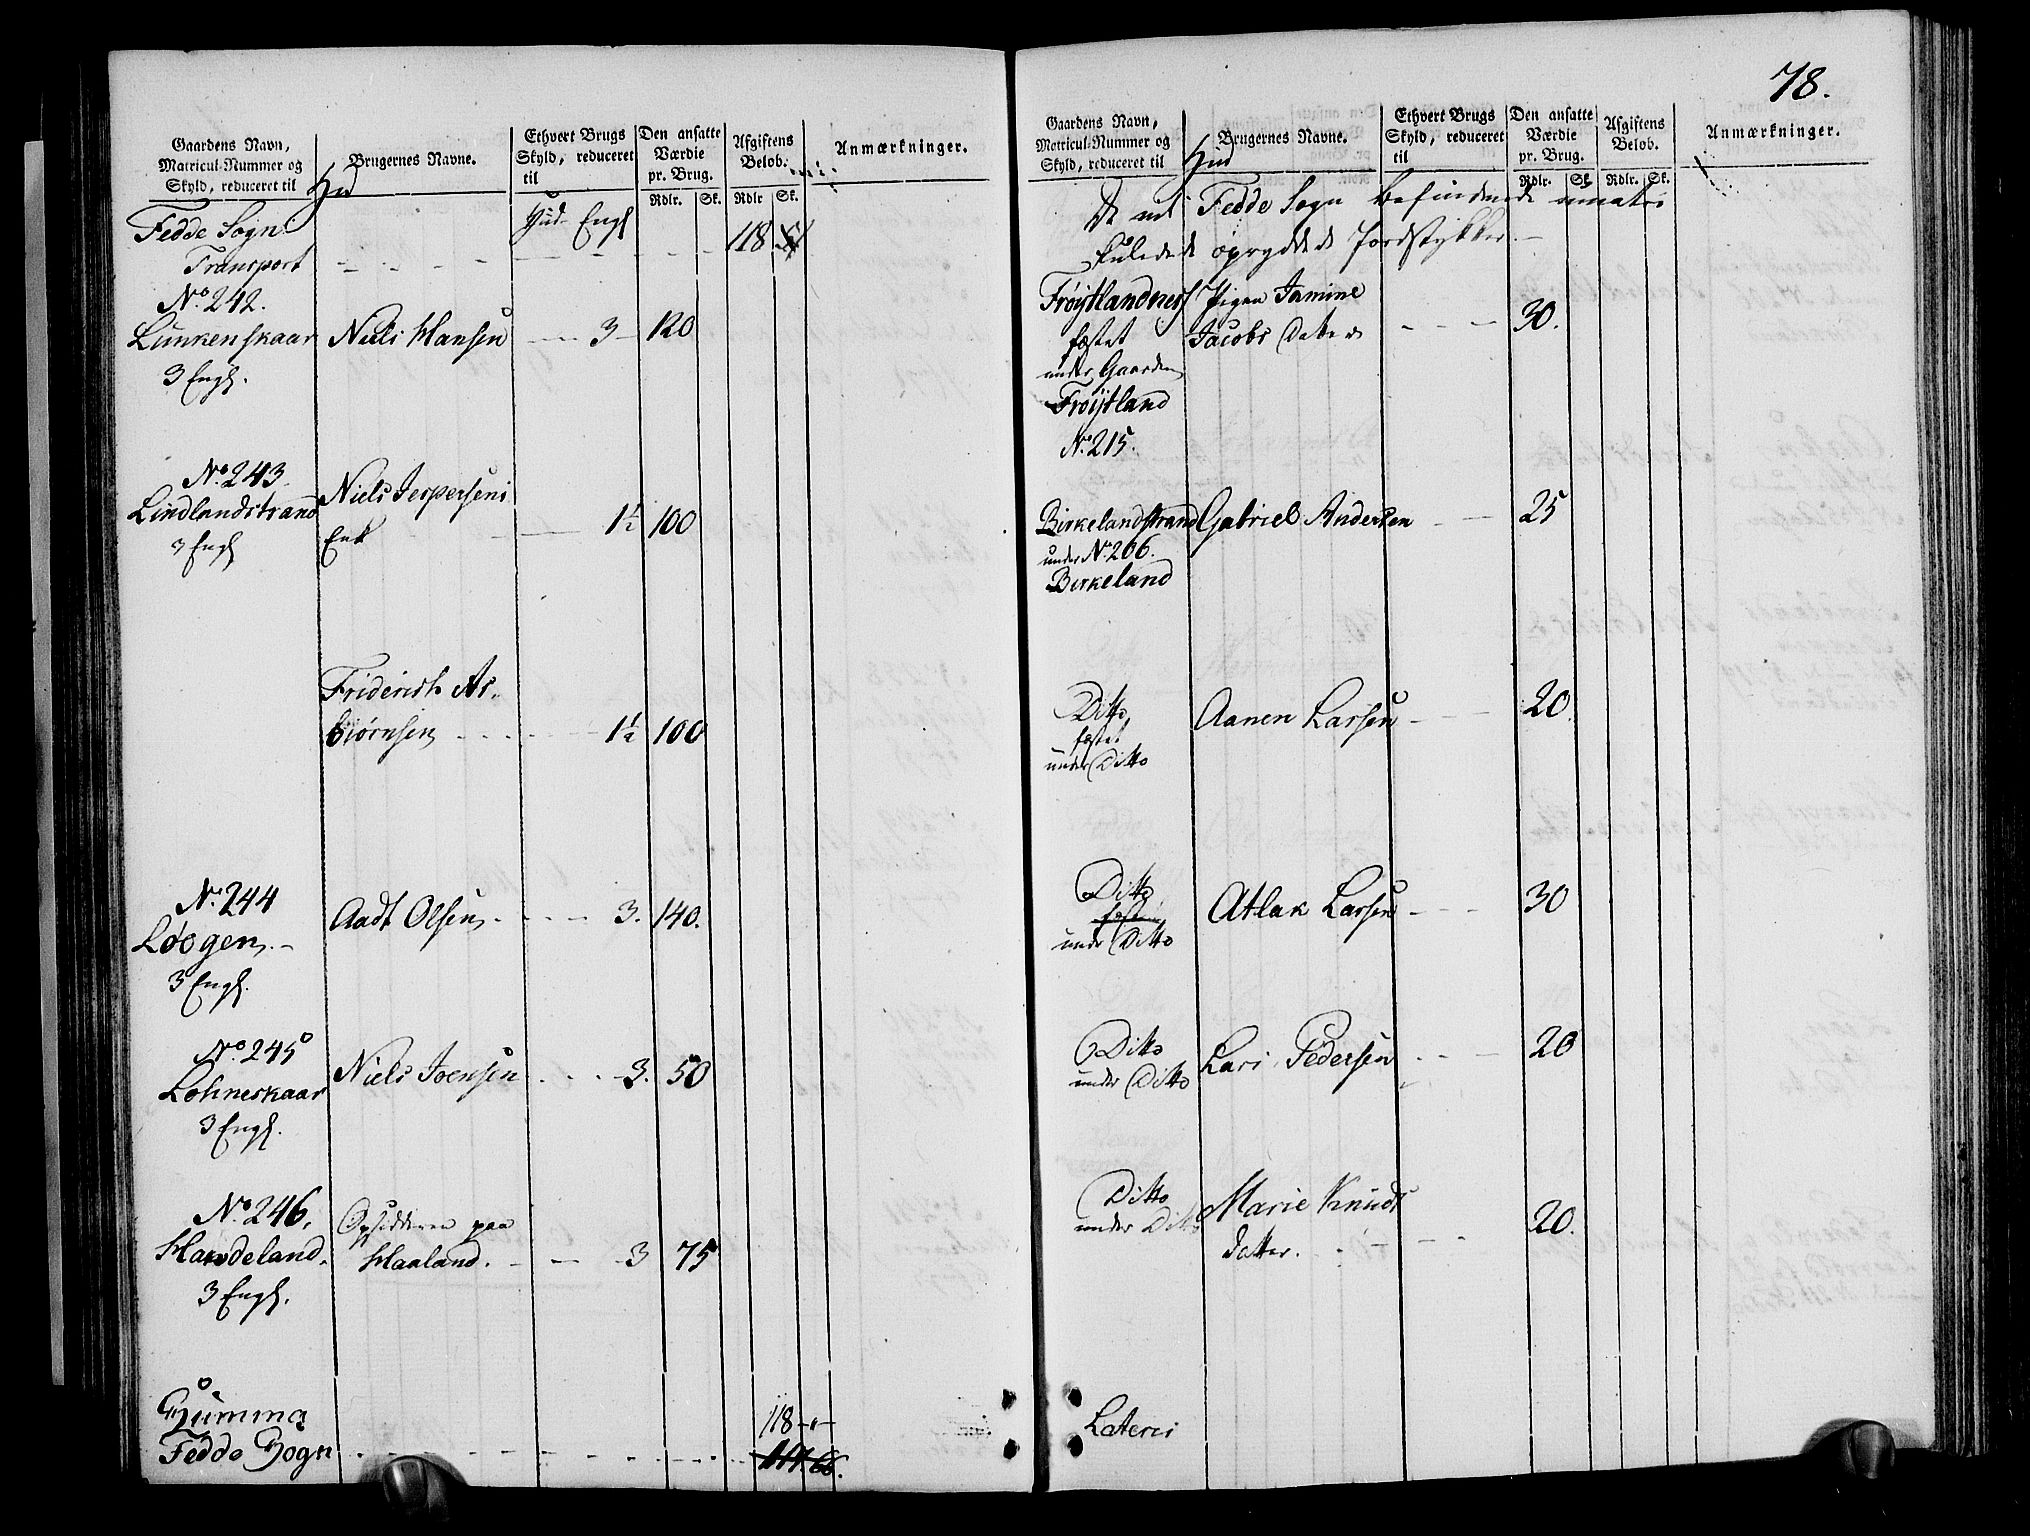 Gaardens Navn,
Matricul-Nummer og
Skyld, reduceret til
Hud
Brugernes Navne.
Ethvert Brugs
Skyld, reduceret
til
Den ansatte
Værdie
pr. Brug.
Afgiftens
Beløb.
Anmærkninger.
Rdlr. Sk. Rdlr Sk.
Fedde Sogn Hud Engl
Transport 118
No. 242.
Lunkenskaar Niels Hansen 3 120
3 Engl.
No. 243.
Lindlandstrand Niels Jespersens
3 Engl Enk 1½ 100
Friderich As-
biørnsen 1½ 100
No. 244
Løogen Aadt Olsen 3. 140.
3 Engl.
No. 245
Lohneskaar Niels Joensen 3. 50
3 Engl.
No. 246. Opsidderen paa
Handeland. Haaland. 3 75
3 Engl.
Summa 118
Fedde Sogn
78.
Gaardens Navn,
Matricul-Nummer og
Skyld, reduceret til
Hud
Brugernes Navne.
Ethvert Brugs
Skyld, reduceret
til
Den ansatte
Værdie
pr. Brug.
Afgiftens
Beløb.
Anmærkninger.
Rdlr. Sk. Rdlr. Sk.
De udi Fedde Sogn befindende umatri
kulerede opryddede Jordstykker.
Frøytlandnes Pigen Jamine
fæstet Jacobs Datter 30.
under Gaarden
Frøytland
No. 215.
Birkelandstrand Gabriel Andersen 25
under No. 206.
Birkeland
Ditto Aanen Larsen 20.
fæstet
under Ditto
Ditto Atlak Larsen 30
under Ditto
Ditto Lars Pedersen 20
under Ditto
Ditto Marie Knuds
under Ditto datter. 20.
Lateris